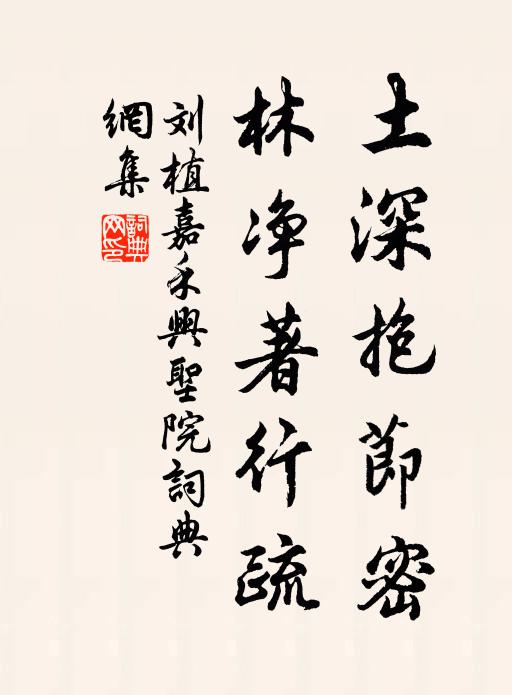 土深抱節密
林净著行疏
刘植嘉禾興聖院詞典
網集
詞典
网印